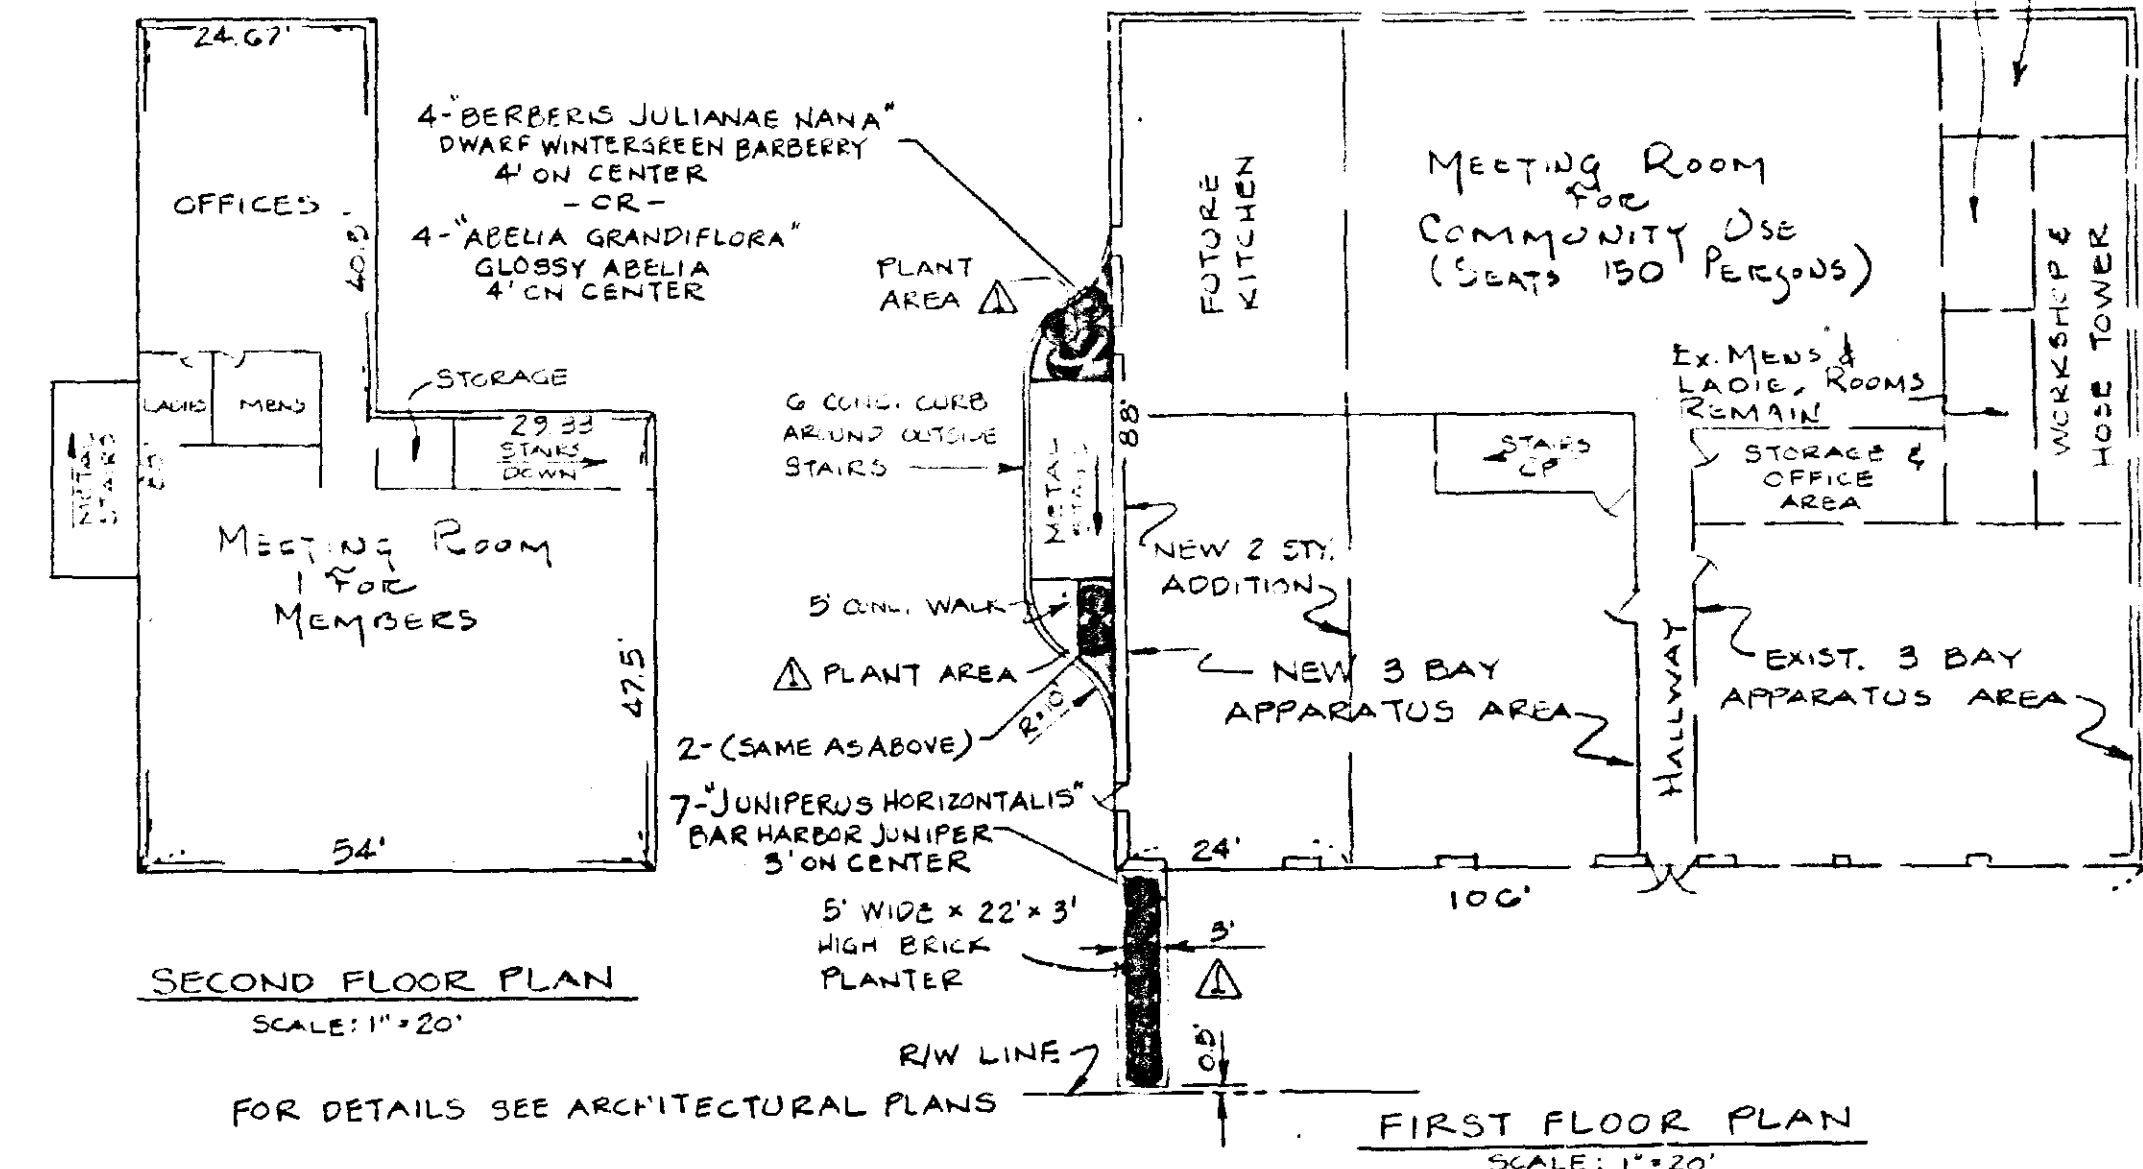 24.67'
OFFICES
40.5'
LADIES
MENS
STORAGE
29.33
STAIRS
DOWN
METAL
STAIRS
MEETING ROOM
FOR
MEMBERS
47.5'
54'
SECOND FLOOR PLAN
SCALE: 1" = 20'
FOR DETAILS SEE ARCHITECTURAL PLANS
4-"BERBERIS JULIANAE NANA"
DWARF WINTERGREEN BARBERRY
4' ON CENTER
- OR -
4-"ABELIA GRANDIFLORA"
GLOSSY ABELIA
4' ON CENTER
PLANT
AREA 1
6 CONC. CURB
AROUND OUTSIDE
STAIRS
METAL
STAIRS
88'
5' CONC. WALK
1 PLANT AREA
R=10'
2-(SAME AS ABOVE)
7-"JUNIPERUS HORIZONTALIS"
BAR HARBOR JUNIPER
3' ON CENTER
5' WIDE x 22' x 3'
HIGH BRICK
PLANTER
1
0.5'
R/W LINE
FUTURE
KITCHEN
MEETING ROOM
FOR
COMMUNITY USE
(SEATS 150 PERSONS)
EX. MENS &
LADIE, ROOMS
REMAIN
WORKSHOP &
HOSE TOWER
STAIRS
UP
STORAGE &
OFFICE
AREA
NEW 2 STY.
ADDITION
NEW 3 BAY
APPARATUS AREA
HALLWAY
EXIST. 3 BAY
APPARATUS AREA
24'
106'
FIRST FLOOR PLAN
SCALE: 1" = 20'